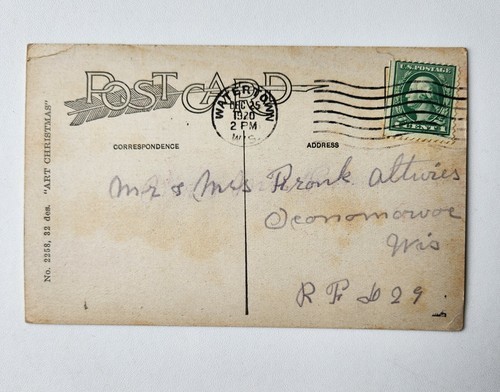 POST CARD
WATERTOWN
DEC 25
1920
2 PM
WIS.
U.S. POSTAGE
CENT
CORRESPONDENCE
ADDRESS
Mr & Mrs Frank Altwies
Oconomowoc
Wis
R F D 29
No. 2258, 32 des. "ART CHRISTMAS"